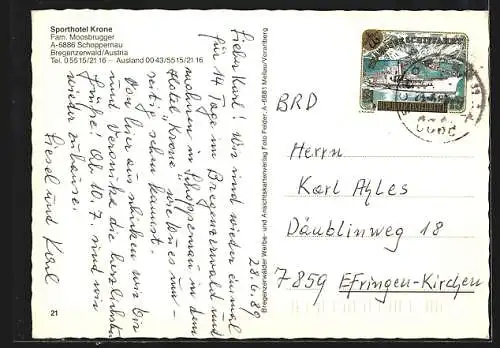 Sporthotel Krone
Fam. Moosbrugger
A-6886 Schoppernau
Bregenzerwald/Austria
Tel. 05515/2116 - Ausland 0043/5515/2116
28.6.89
Lieber Karl! Wir sind wieder einmal
für 14 Tage im Bregenzerwald und
wohnen in Schoppernau in dem
Hotel "Krone" wie du es um-
seitig sehen kannst.
Von hier aus schicken wir Dir
und Veronika die herzlichsten
Grüße! Ab 10.7. sind wir
wieder zuhause.
Liesel und Karl
21
Bregenzerwälder Werbe- und Ansichtskartenverlag Foto Felder, A-6881 Mellau/Vorarlberg
BRD
Herrn
Karl
Däublinweg 18
7859 Efringen-Kirchen